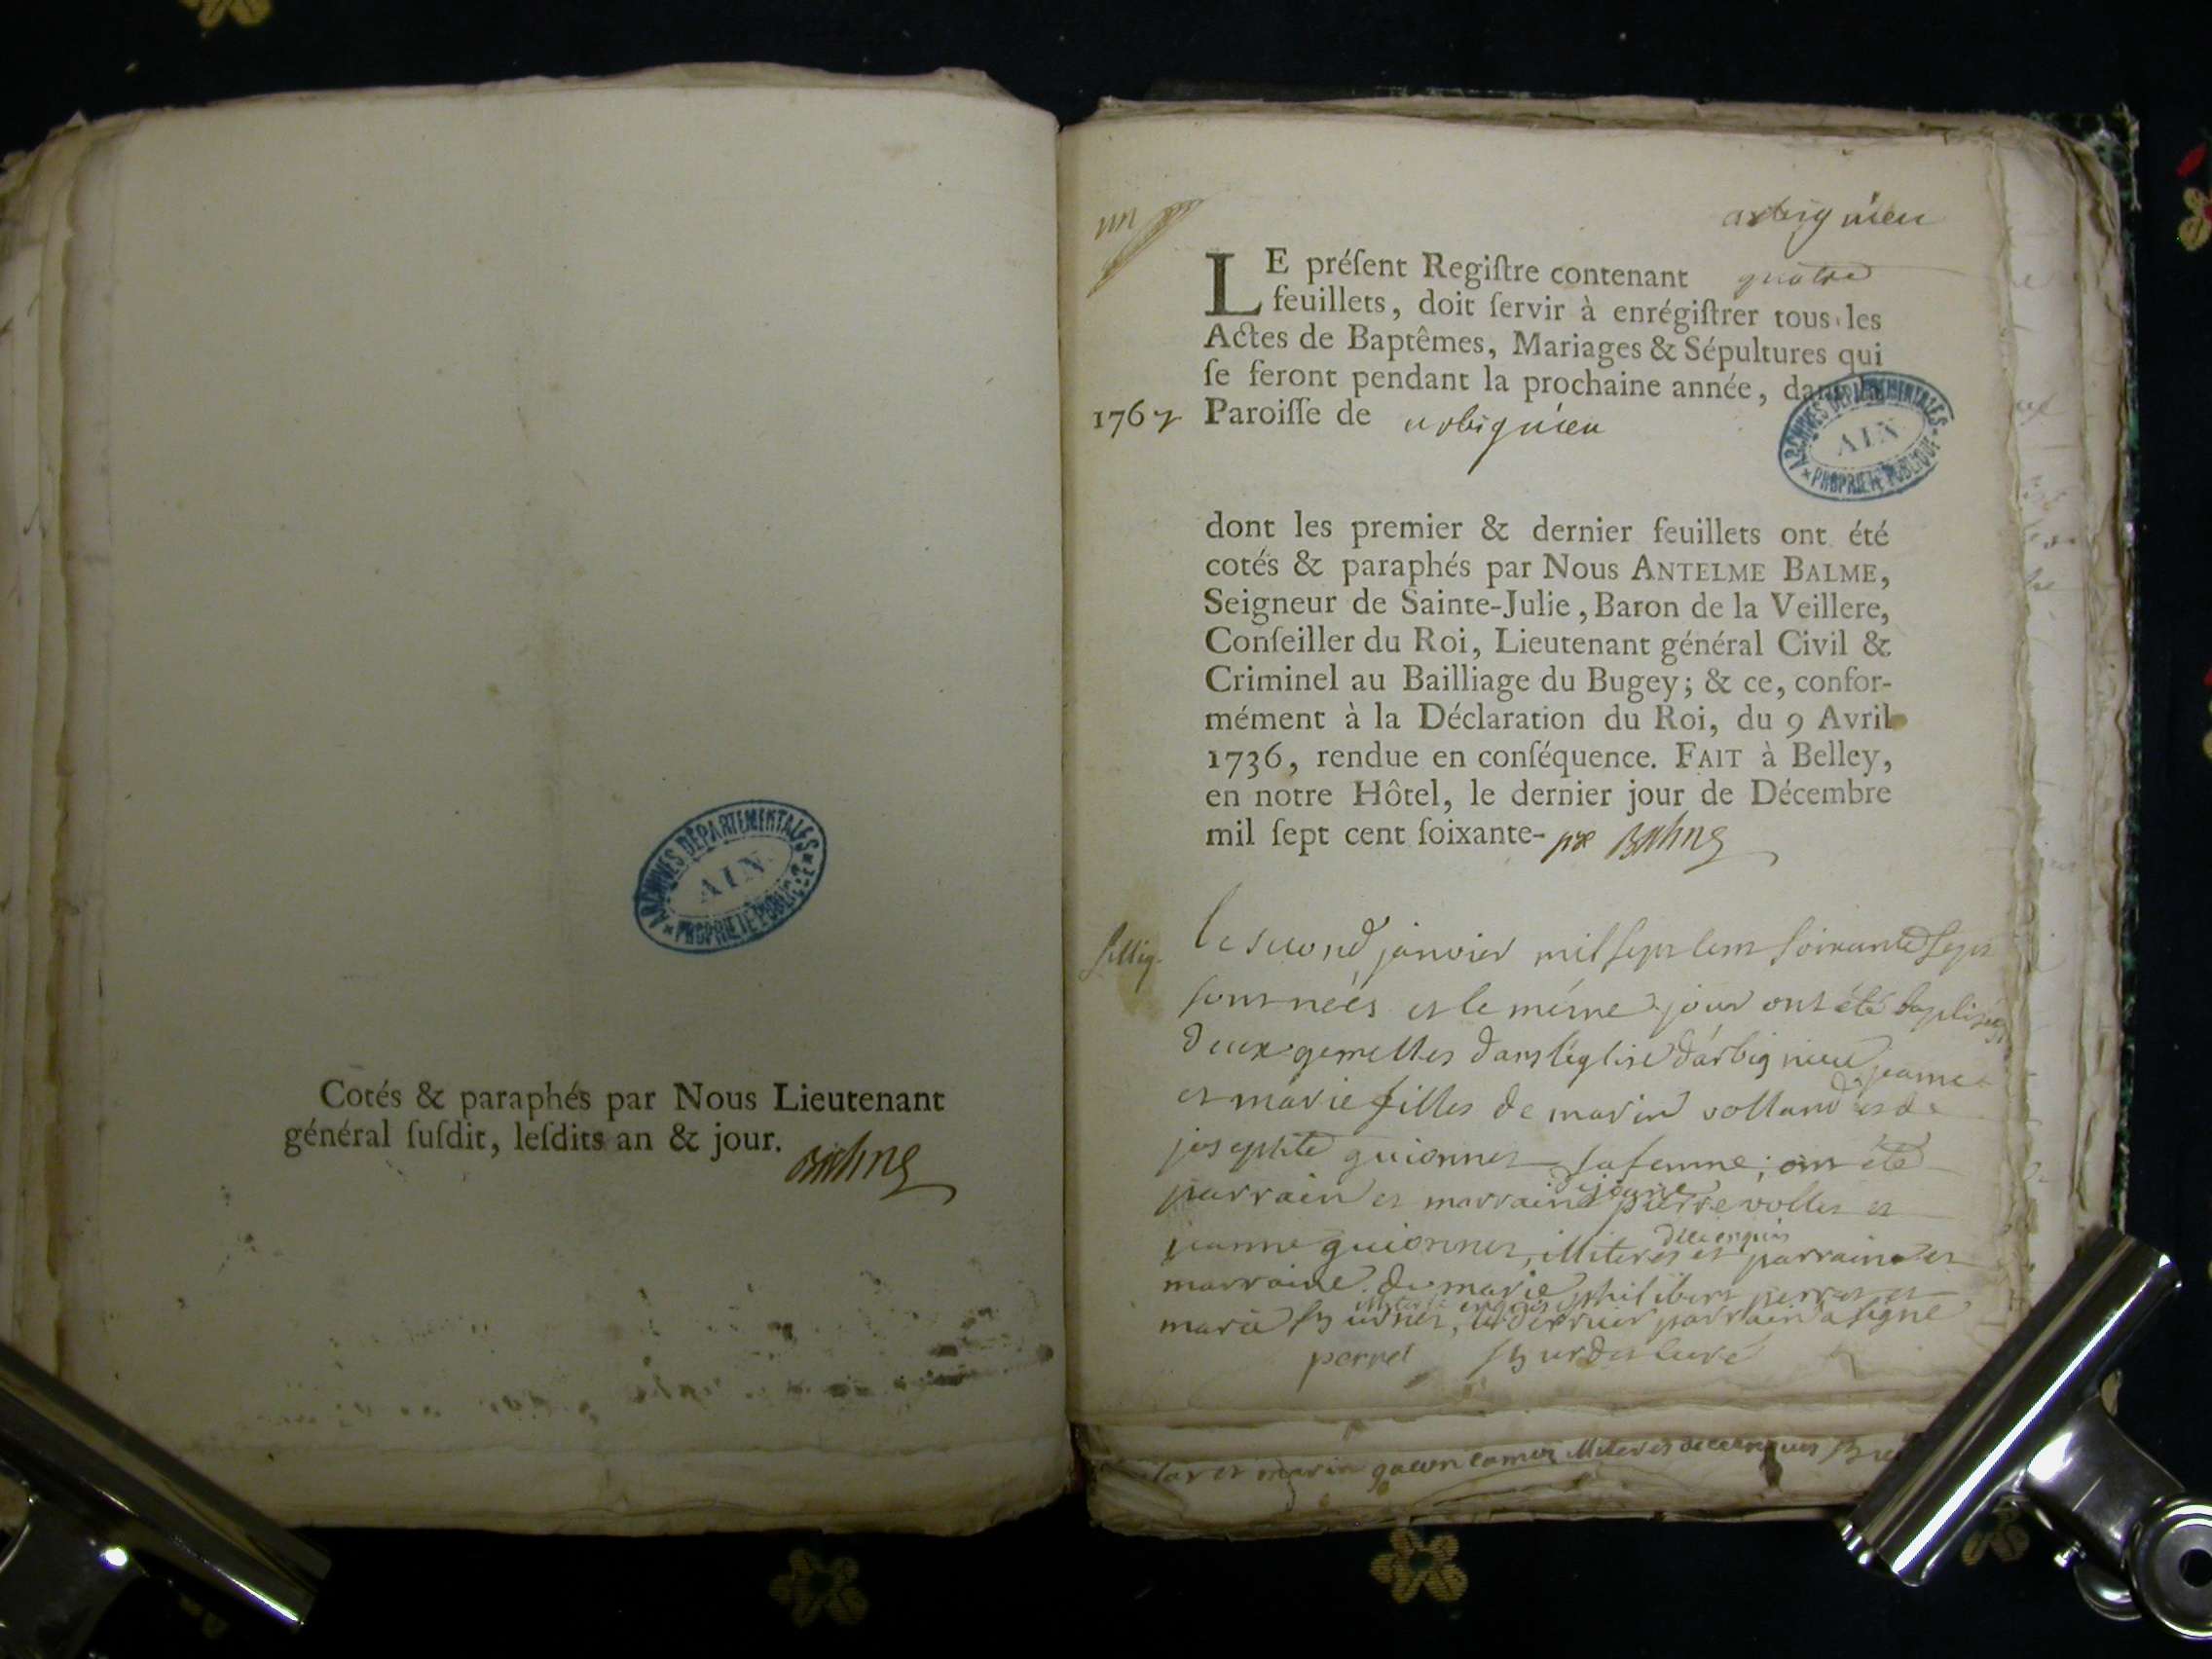 ARCHIVES DÉPARTEMENTALES
AIN
PROPRIÉTÉ PUBLIQUE
Cotés & paraphés par Nous Lieutenant
général ſuſdit, leſdits an & jour.
Balme
un
arbignieu
LE préſent Regiſtre contenant quatre
feuillets, doit ſervir à enrégiſtrer tous les
Actes de Baptêmes, Mariages & Sépultures qui
ſe feront pendant la prochaine année, dans la
1767 Paroiſſe de arbignieu
ARCHIVES DÉPARTEMENTALES
AIN
PROPRIÉTÉ PUBLIQUE
dont les premier & dernier feuillets ont été
cotés & paraphés par Nous ANTELME BALME,
Seigneur de Sainte-Julie, Baron de la Veillere,
Conſeiller du Roi, Lieutenant général Civil &
Criminel au Bailliage du Bugey; & ce, confor-
mément à la Déclaration du Roi, du 9 Avril
1736, rendue en conſéquence. FAIT à Belley,
en notre Hôtel, le dernier jour de Décembre
mil ſept cent ſoixante- six Balme
le second janvier mil sept cent soixante sept
sont neés et le méme jour ont été baptisées
deux gemelles dans l'église d'arbignieu jeanne
et marie filles de marin volland et de
josephte guionnet sa femme; ont été
parrain et marraine de jeanne pierre vollet et
jeanne guionnet, illiterés enquis et parrain et
marraine de marie philibert perret et
marie illiterée enquise, le dernier parrain a signé
perret curé
et marin illiterés de ce enquis